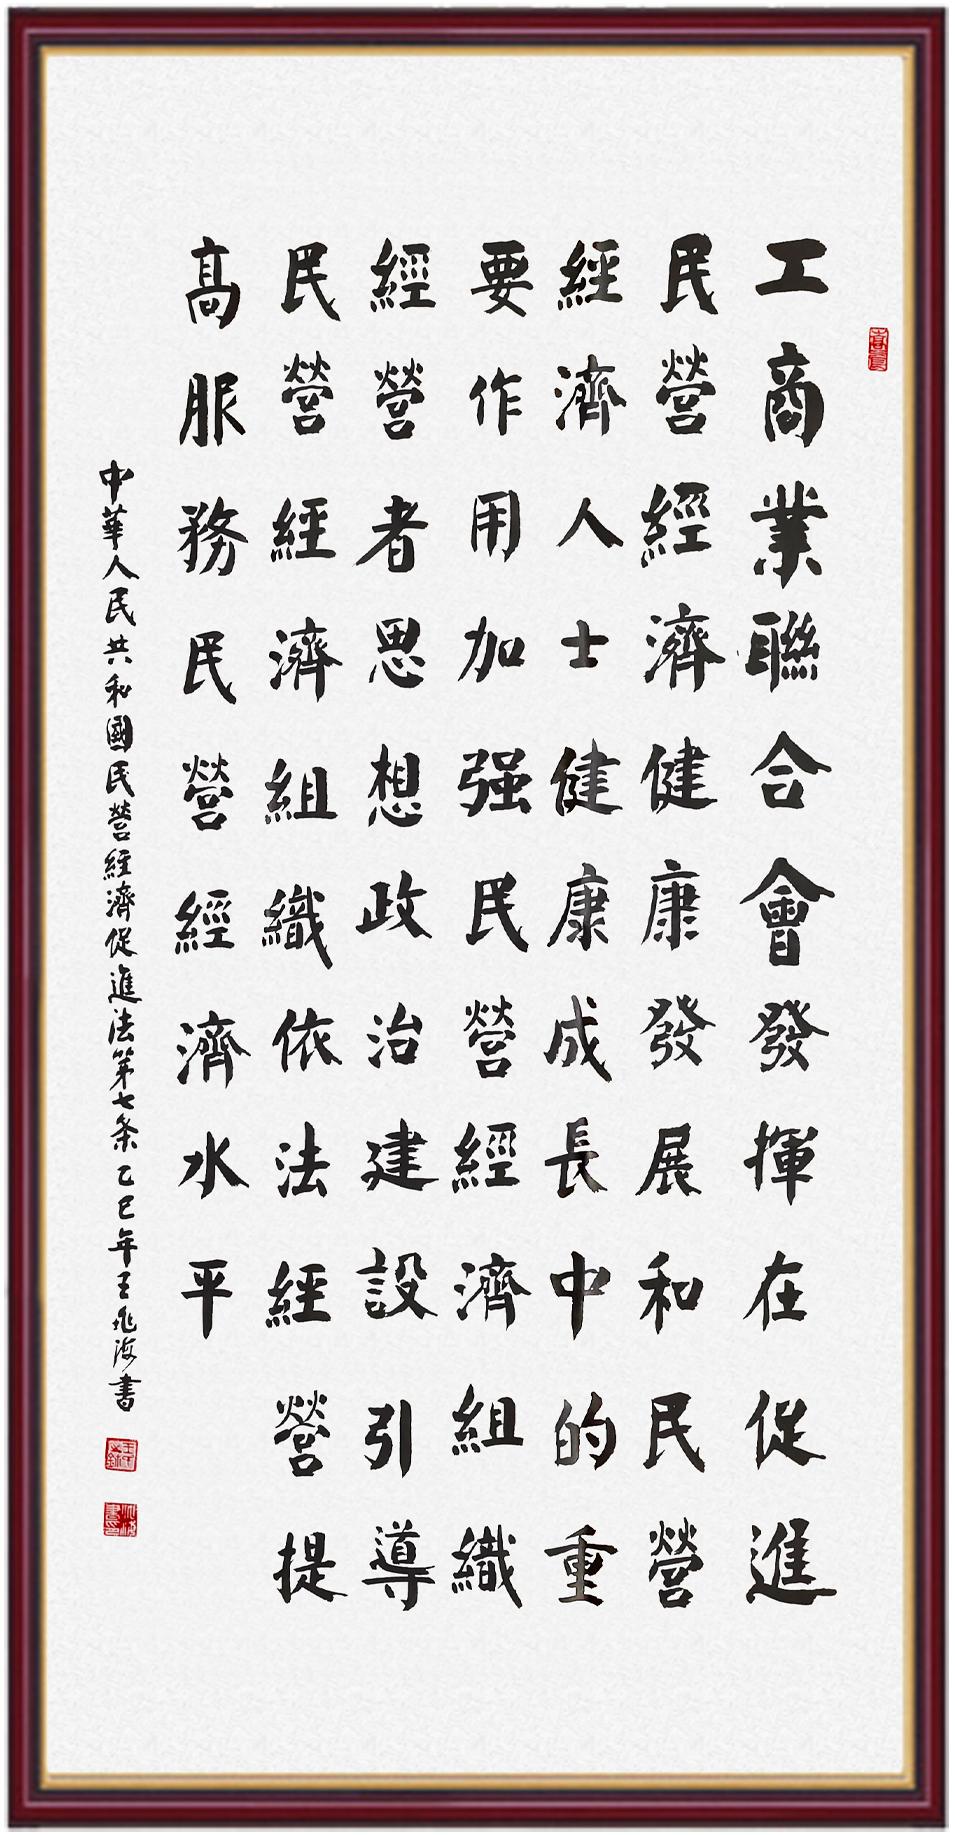 工商業聯合會發揮在促進
民營經濟健康發展和民營
經濟人士健康成長中的重
要作用加强民營經濟組織
經營者思想政治建設引導
民營經濟組織依法經營提
高服務民營經濟水平
中華人民共和國民營經濟促進法第七条乙巳年王兆海書